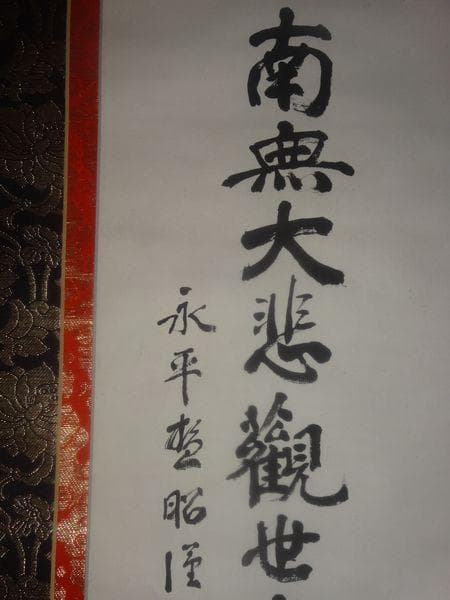 南無大悲觀世
永平慧昭謹